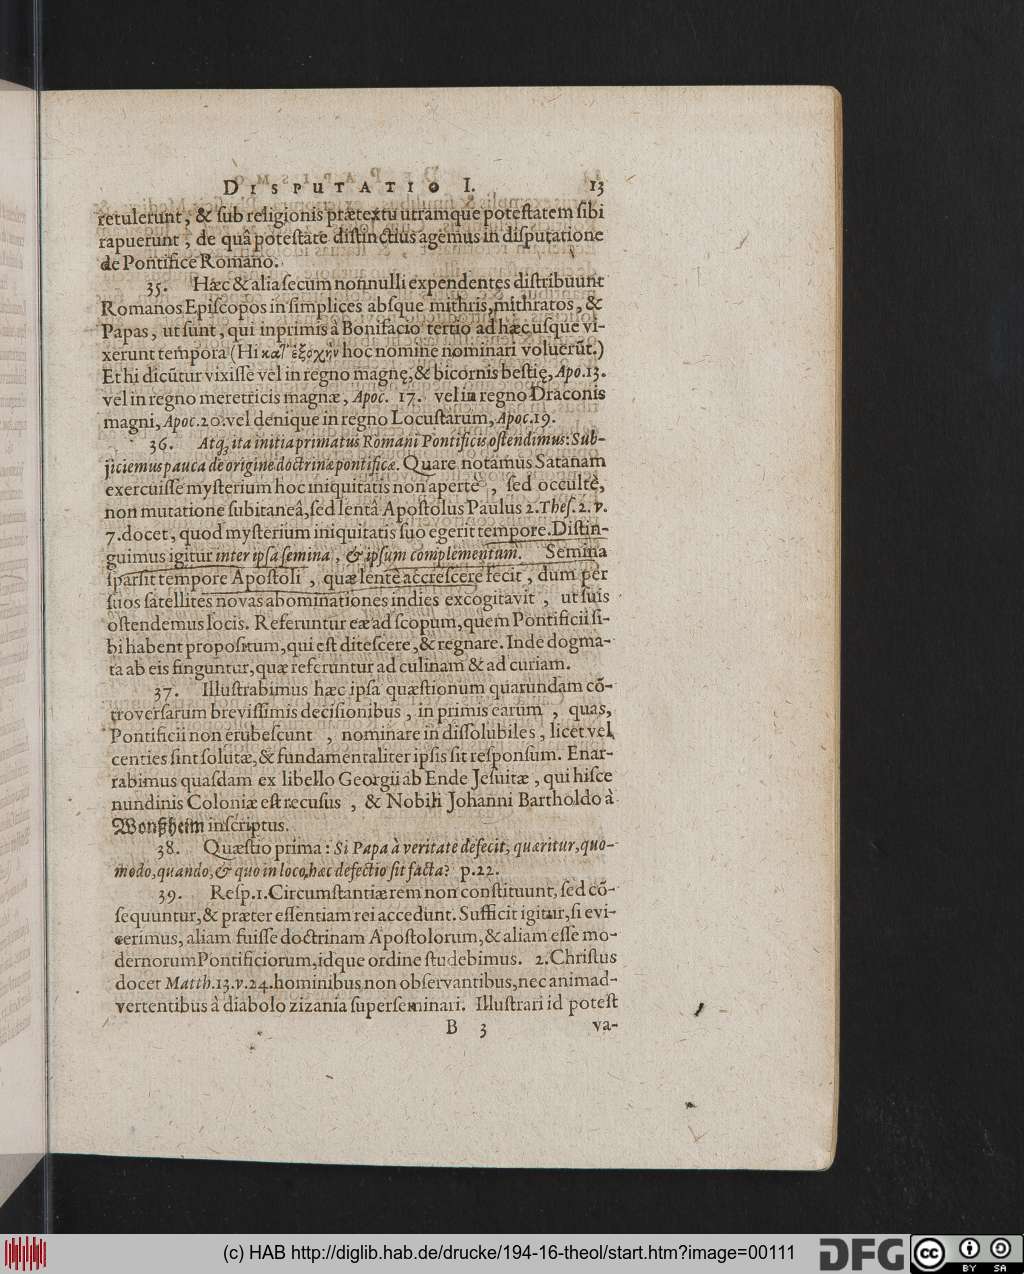 DISPUTATIO I. 13
retulerunt, & ſub religionis prætextu utramque poteſtatem ſibi
rapuerunt, de quâ poteſtate diſtinctius agemus in diſputatione
de Pontifice Romano.
35. Hæc & alia ſecum nonnulli expendentes diſtribuunt
Romanos Epiſcopos in ſimplices abſque mithris, mithratos, &
Papas, ut ſunt, qui inprimis à Bonifacio tertio ad hæc uſque vi-
xerunt tempora (Hi κατ' ἐξοχὴν hoc nomine nominari voluerũt.)
Et hi dicũtur vixiſſe vel in regno magnę, & bicornis beſtię, Apo. 13.
vel in regno meretricis magnæ, Apoc. 17. vel in regno Draconis
magni, Apoc. 20. vel denique in regno Locuſtarum, Apoc. 19.
36. Atq; ita initia primatus Romani Pontificis oſtendimus: Sub-
jiciemus pauca de origine doctrinæ pontificæ. Quare notamus Satanam
exercuiſſe myſterium hoc iniquitatis non apertè, ſed occultè,
non mutatione ſubitaneâ, ſed lentâ Apoſtolus Paulus 2. Theſ. 2. v.
7. docet, quod myſterium iniquitatis ſuo egerit tempore. Diſtin-
guimus igitur inter ipſa ſemina, & ipſum complementum. Semina
ſparſit tempore Apoſtoli, quæ lentè accreſcere fecit, dum per
ſuos ſatellites novas abominationes indies excogitavit, ut ſuis
oſtendemus locis. Referuntur eæ ad ſcopum, quem Pontificii ſi-
bi habent propoſitum, qui eſt diteſcere, & regnare. Inde dogma-
ta ab eis finguntur, quæ referuntur ad culinam & ad curiam.
37. Illuſtrabimus hæc ipſa quæſtionum quarundam cõ-
troverſarum breviſſimis deciſionibus, in primis earum, quas,
Pontificii non erubeſcunt, nominare in diſſolubiles, licet vel
centies ſint ſolutæ, & fundamentaliter ipſis ſit reſponſum. Enar-
rabimus quaſdam ex libello Georgii ab Ende Jeſuitæ, qui hiſce
nundinis Coloniæ eſt recuſus, & Nobili Johanni Bartholdo à
Wonßheim inſcriptus.
38. Quæſtio prima: Si Papa à veritate defecit, quæritur, quo-
modo, quando, & quo in loco, hæc defectio ſit facta? p. 22.
39. Reſp. 1. Circumſtantiæ rem non conſtituunt, ſed cõ-
ſequuntur, & præter eſſentiam rei accedunt. Sufficit igitur, ſi evi-
cerimus, aliam fuiſſe doctrinam Apoſtolorum, & aliam eſſe mo-
dernorum Pontificiorum, idque ordine ſtudebimus. 2. Chriſtus
docet Matth. 13. v. 24. hominibus non obſervantibus, nec animad-
vertentibus à diabolo zizania ſuperſeminari. Illuſtrari id poteſt
B 3 va-
(c) HAB http://diglib.hab.de/drucke/194-16-theol/start.htm?image=00111
DFG
cc BY SA